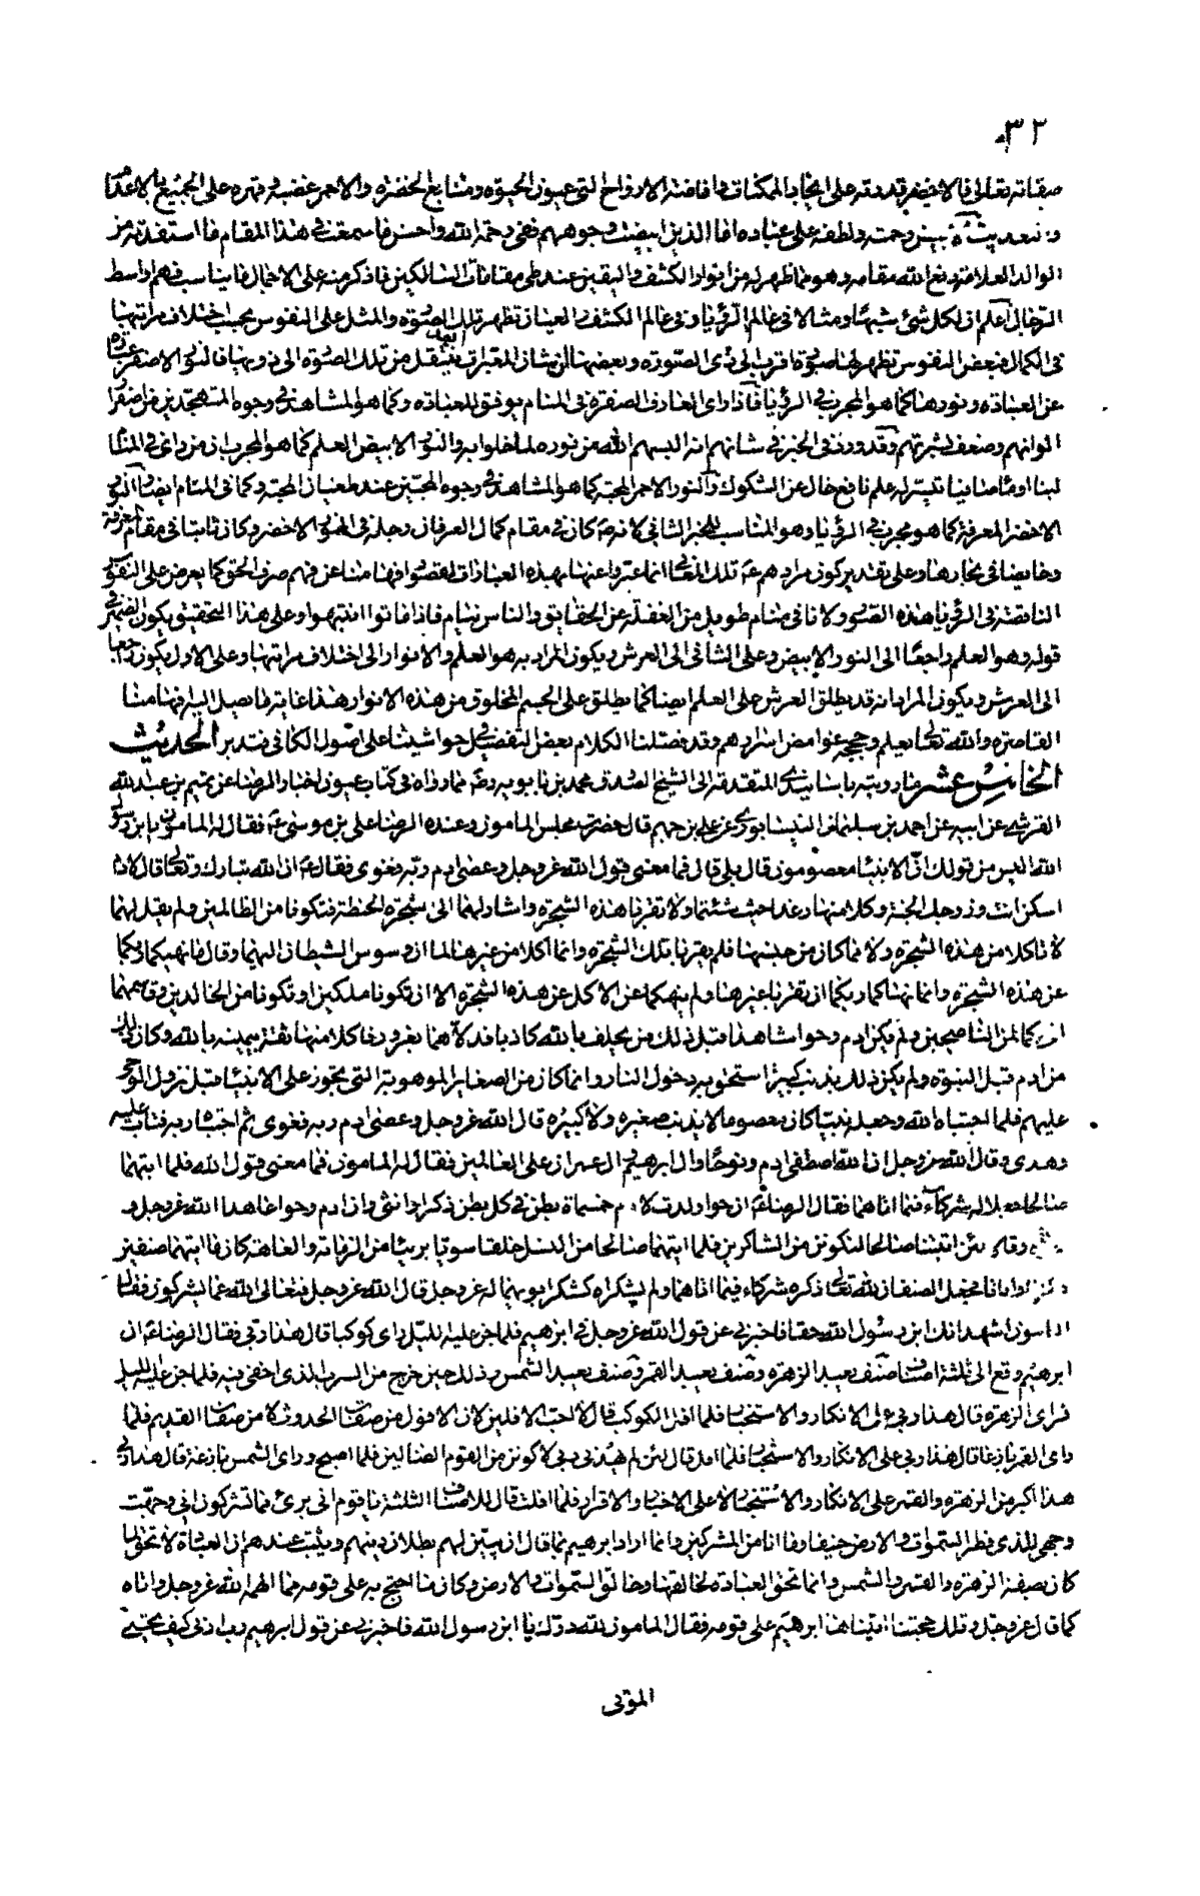 ٣٢
صفاته تعالى فالاخضر قدرته على ايجاد الممكنات وافاضة الارواح التي عيون الحيوة ومنابع الخضرة والاحمر غضبه وقهره على الجميع بالاعدام
والتعذيب والابيض رحمته ولطفه على عباده اما الذين ابيضت وجوههم ففي رحمة الله واحسن ما سمعت في هذا المقام ما استفدته من
الوالد العلامة رفع الله مقامه وهو مما ظهر له من انوار الكشف واليقين عند طي مقامات السالكين فاذكر منه على الاجمال ما يناسب فهم اواسط
الرجال اعلم ان لكل شئ شبها ومثالا في عالم الرؤيا وفي عالم الكشف والعيان تظهر تلك الصورة والمثل على النفوس بحسب اختلاف مراتبها
في الكمال فبعض النفوس تظهر لها صورة اقرب الى ذي الصورة وبعضها ابعد وشان المعبر ان ينتقل من تلك الصورة الى ذويها فالنور الاصفر عبارة
عن العبادة ونورها كما هو المجرب في الرؤيا فاذا راى العارف الصفرة في المنام يوفق للعبادة وكما هو المشاهد في وجوه المتهجدين من اصفرار
الوانهم وضعف بشرتهم وقد ورد في الخبر في شانهم انه البسهم الله من نوره لما خلوا به والنور الابيض العلم كما هو المجرب ان من راى في المنام
لبنا او ماء صافيا تيسر له علم نافع خال عن الشكوك والنور الاحمر المحبة كما هو المشاهد في وجوه المحبين عند طغيان المحبة وكما في المنام ايضا والنور
الاخضر المعرفة كما هو مجرب في الرؤيا وهو المناسب للخبر الثاني لانه ص كان في مقام كمال العرفان ورجلاه في النور الاخضر وكان ثابتا في مقام المعرفة
وخايضا في بحارها وعلى تقدير كون مرادهم ع تلك المعاني انما عبروا عنها بهذه العبارات لقصور افهامنا عن فهم صرف الحق كما يعرض على النفوس
الناقصة في الرؤيا هذه الصور ولانا في منام طويل من الغفلة عن الحقايق والناس نيام فاذا ماتوا انتبهوا وعلى هذا التحقيق يكون الضمير في
قوله وهو العلم راجعا الى النور الابيض وعلى الثاني الى العرش ويكون المراد به هو العلم والانوار الى اختلاف مراتبها وعلى الاول يكون راجعا
الى العرش ويكون المراد انه قد يطلق العرش على العلم ايضا كما يطلق على الجسم المخلوق من هذه الانوار هذا غاية ما يصل اليه افهامنا
القاصرة والله تعالى يعلم وحججه غوامض اسرارهم وقد فصلنا الكلام بعض التفصيل في حواشينا على اصول الكافي فتدبر الحديث
الخامس عشر ما رويته باسانيدي المتقدمة الى الشيخ الصدوق محمد بن بابويه رضه مما رواه في كتاب عيون اخبار الرضا عن تميم بن عبد الله
القرشي عن ابيه عن احمد بن سليمان النيسابوري عن علي بن جهم قال حضرت مجلس المامون وعنده الرضا علي بن موسى ع فقال له المامون يا ابن رسول
الله اليس من قولك ان الانبياء معصومون قال بلى قال فما معنى قول الله عز وجل وعصى ادم ربه فغوى فقال ع ان الله تبارك وتعالى قال لادم
اسكن انت وزوجك الجنة وكلا منها رغدا حيث شئتما ولا تقربا هذه الشجرة واشار لهما الى شجرة الحنطة فتكونا من الظالمين ولم يقل لهما
لا تاكلا من هذه الشجرة ولا مما كان من جنسها فلم يقربا تلك الشجرة وانما اكلا من غيرها لما ان وسوس الشيطان اليهما وقال ما نهيكما ربكما
عن هذه الشجرة وانما نهيكما ربكما ان تقربا غيرها ولم ينهكما عن الاكل عن هذه الشجرة الا ان تكونا ملكين او تكونا من الخالدين وقاسمهما
اني لكما لمن الناصحين ولم يكن ادم وحوا شاهدا قبل ذلك من يحلف بالله كاذبا فدلاهما بغرور فاكلا منها ثقة بيمينه بالله وكان ذلك
من ادم قبل النبوة ولم يكن ذلك بذنب كبير استحق به دخول النار وانما كان من الصغاير الموهوبة التي تجوز على الانبياء قبل نزول الوحي
عليهم فلما اجتباه الله وجعله نبيا كان معصوما لا يذنب صغيرة ولا كبيرة قال الله عز وجل وعصى ادم ربه فغوى ثم اجتباه ربه فتاب عليه
وهدى وقال الله عز وجل ان الله اصطفى ادم ونوحا وال ابرهيم وال عمران على العالمين فقال له المامون فما معنى قول الله فلما اتيهما
صالحا جعلا له شركاء فيما اتاهما فقال الرضا ع ان حوا ولدت لادم خمسمائة بطن في كل بطن ذكرا وانثى وان ادم وحوا عاهدا الله عز وجل و
دعواه وقالا لئن اتيتنا صالحا لنكونن من الشاكرين فلما اتيهما صالحا من النسل خلقا سويا بريئا من الزمانة والعاهة كان ما اتيهما صنفين
ذكرانا واناثا فجعل الصنفان لله تعالى ذكره شركاء فيما اتاهما ولم يشكراه كشكر ابويهما له عز وجل قال الله عز وجل فتعالى الله عما يشركون فقال
المامون اشهد انك ابن رسول الله حقا فاخبرني عن قول الله عز وجل في ابرهيم فلما جن عليه الليل راى كوكبا قال هذا ربي فقال الرضا ع ان
ابرهيم وقع الى ثلثة اصناف صنف يعبد الزهرة وصنف يعبد القمر وصنف يعبد الشمس وذلك حين خرج من السرب الذي اخفي فيه فلما جن عليه الليل
فراى الزهرة قال هذا ربي على الانكار والاستخبار فلما افل الكوكب قال لا احب الافلين لان الافول من صفات الحدوث لا من صفات القديم فلما
راى القمر بازغا قال هذا ربي على الانكار والاستخبار فلما افل قال لئن لم يهدني ربي لاكونن من القوم الضالين فلما اصبح وراى الشمس بازغة قال هذا ربي
هذا اكبر من الزهرة والقمر على الانكار والاستخبار لا على الاخبار والاقرار فلما افلت قال للاصناف الثلثة يا قوم اني برئ مما تشركون اني وجهت
وجهي للذي فطر السموات والارض حنيفا وما انا من المشركين وانما اراد ابرهيم بما قال ان يبين لهم بطلان دينهم ويثبت عندهم ان العبادة لا تحق لما
كان بصفة الزهرة والقمر والشمس وانما تحق العبادة لخالقها وخالق السموات والارض وكان ما احتج به على قومه مما الهمه الله عز وجل واتاه
كما قال عز وجل وتلك حجتنا اتيناها ابرهيم على قومه فقال المامون لله درك يا ابن رسول الله فاخبرني عن قول ابرهيم رب ارني كيف تحيي
الموتى